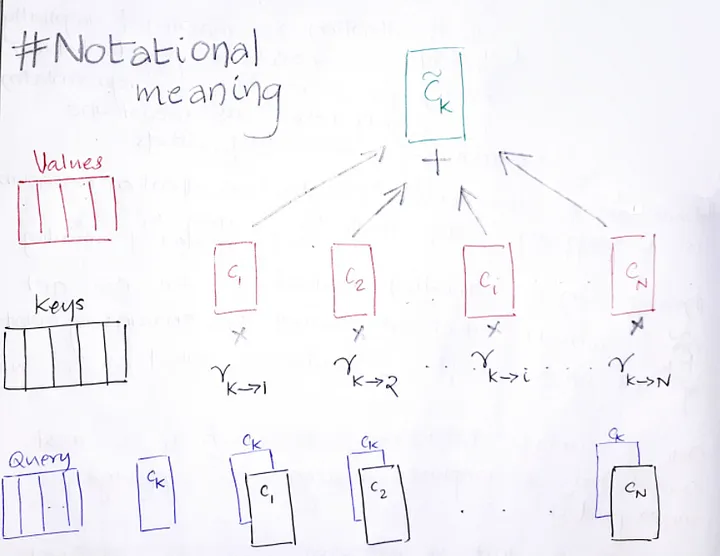 #Notational
meaning
C̃K
+
Values
C1 C2 Ci CN
Keys
x x x x
γK→1 γK→2 . . γK→i . . . γK→N
Query
CK
CK CK CK
C1 C2 . . . CN